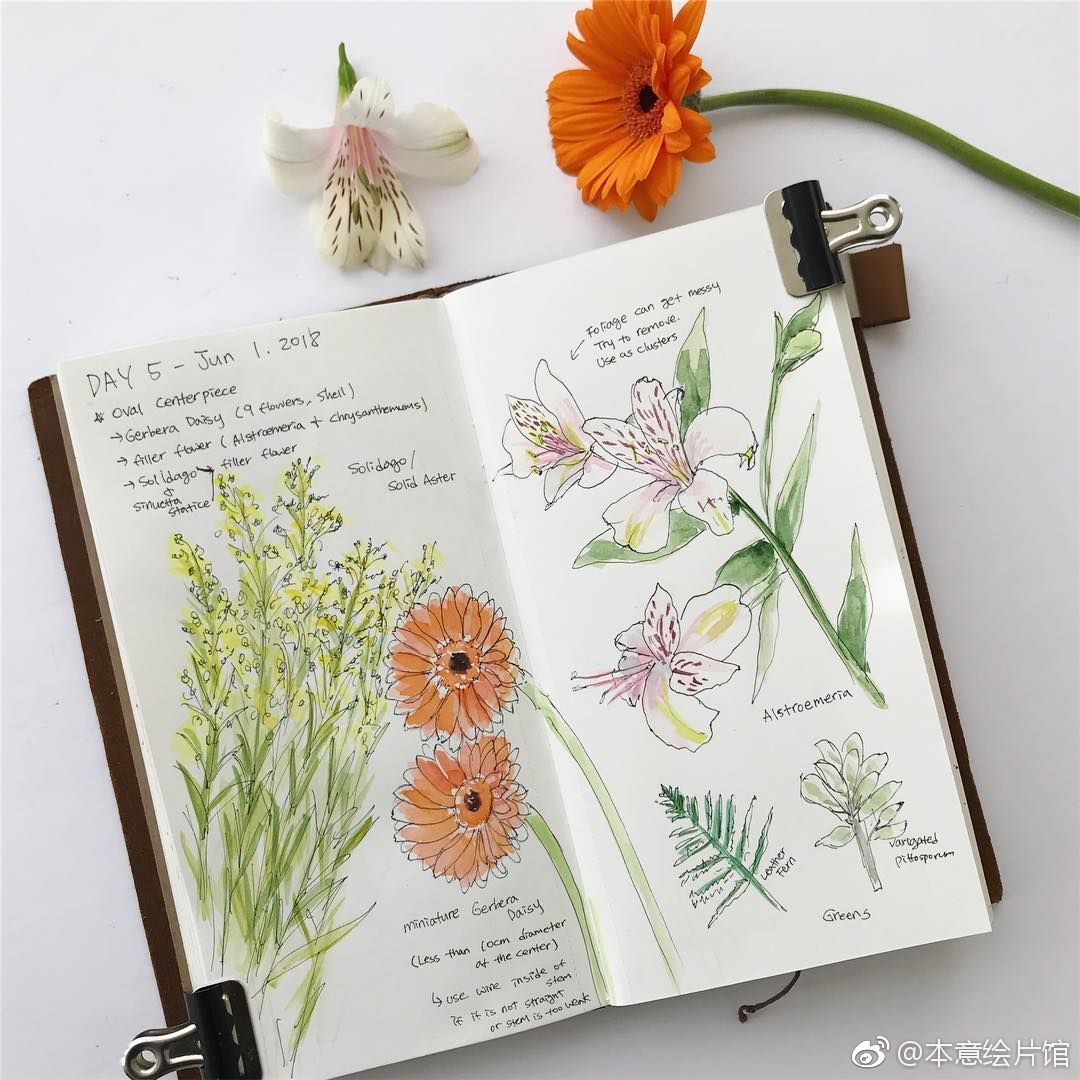 DAY 5 - Jun 1. 2018
☆ Oval Centerpiece
→ Gerbera Daisy (9 flowers, shell)
→ filler flower (Alstroemeria + Chrysanthemums)
→ Solidago → filler flower
& sinuetta
statice
Solidago/
Solid Aster
miniature Gerbera
Daisy
(Less than 10cm diameter
at the center)
↳ use wire inside of
stem
if it is not straight
or stem is too weak
Foliage can get messy
Try to remove.
Use as clusters
Alstroemeria
Leather
Fern
Varigated
Pittosporum
Greens
@本意绘片馆